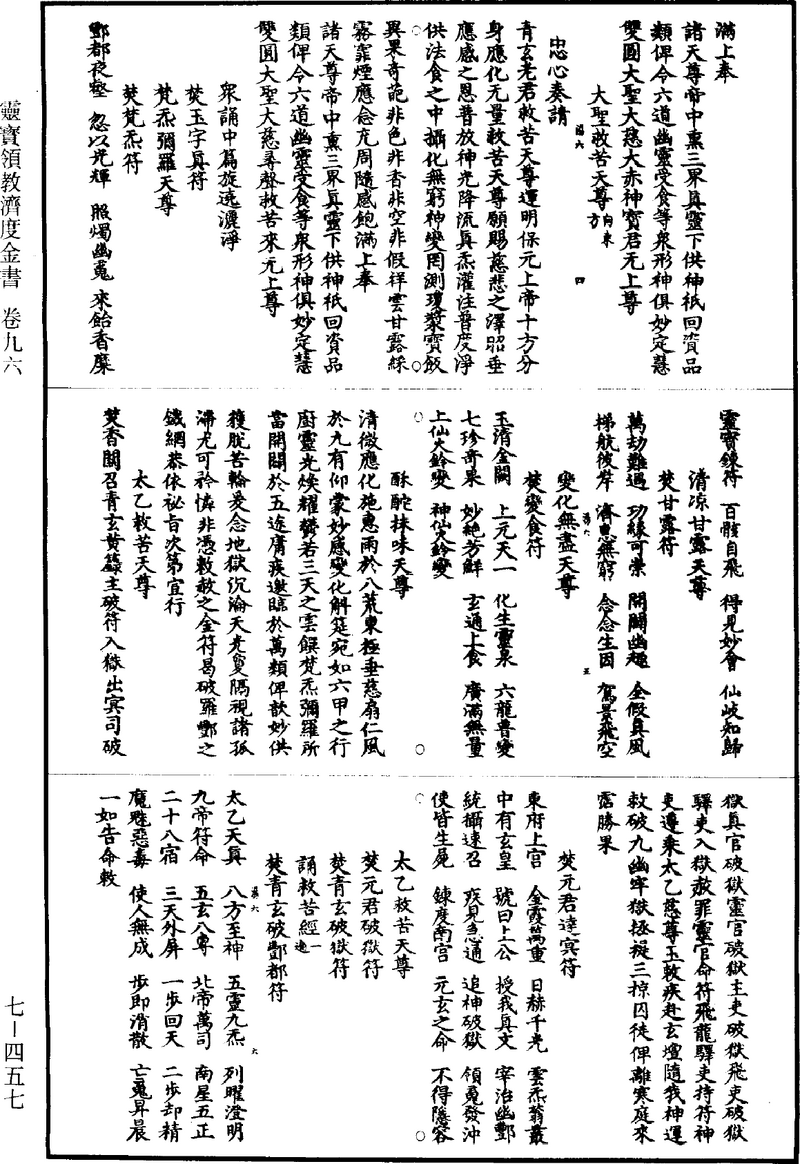 靈寶領教濟度金書　卷九六
七－四五七
滿上奉
諸天尊帝中熏三界真靈下供神祇回資品
類俾今六道幽靈受食等衆形神俱妙定慧
雙圓大聖大慈大赤神寶君无上尊
大聖救苦天尊向東方
四
忠心奏請
青玄老君救苦天尊運明保元上帝十方分
身應化无量救苦天尊願賜慈悲之澤昭垂
應感之恩普放神光降流真炁灌注普度淨
供法食之中攝化無窮神變罔測瓊漿寶飯
異果奇葩非色非香非空非假祥雲甘露綵
霧霏煙應念充周隨感飽滿上奉
諸天尊帝中熏三界真靈下供神祇回資品
類俾今六道幽靈受食等衆形神俱妙定慧
雙圓大聖大慈尋聲救苦來无上尊
衆誦中篇旋遶灑淨
焚玉字真符
梵炁彌羅天尊
焚梵炁符
酆都夜壑　忽以光輝　照燭幽寃　來飴香糜
靈寶鍊符　百骸自飛　得見妙會　仙岐知歸
清凉甘露天尊
焚甘露符
萬劫難遇　功緣可崇　開闢幽趣　全假真風
梯航彼岸　濟息無窮　念念生因　駕景飛空
五
變化無盡天尊
焚變食符
玉清金闕　上元天一　化生靈泉　六龍普變
七珍奇果　妙絶芳鮮　玄通上食　廣滿無量
上仙大鈴變　神仙大鈴變
酥酡抹味天尊
清微應化施惠雨於八荒東極垂慈扇仁風
於九有仰蒙妙感變化解筵宛如六甲之行
廚靈光煥耀鬱若三天之雲饌梵炁彌羅所
當開闢於五途膚疾邀臨於萬類俾歆妙供
獲脫苦輪爰念地獄沉淪天光敻隔視諸孤
滯尤可衿憐非憑敕赦之金符曷破羅酆之
鐵網恭依祕旨次第宜行
太乙救苦天尊
焚香關召青玄黄籙主破符入獄出冥司破
獄真官破獄靈官破獄主吏破獄飛吏破獄
驛吏入獄赦罪靈官命符飛龍驛吏持符神
吏遵承太乙慈尊玉敕疾赴玄壇隨我神運
敕破九幽牢獄拯拔三掠囚徒俾離寒庭來
霑勝果
焚元君達冥符
東府上宮　金霞萬重　日赫千光　雲炁蓊叢
中有玄皇　號曰上公　授我真文　宰治幽酆
統攝速召　疾見悤通　追神破獄　領寃發沖
使皆生晃　鍊度南宮　元玄之命　不得隱容
太乙救苦天尊
焚元君破獄符
焚青玄破獄符
誦救苦經一遍
焚青玄破酆都符
六
太乙天真　八方至神　五靈九炁　列曜澄明
九帝符命　五玄八尊　北帝萬司　南星五正
二十八宿　三天外屏　一步回天　二步却精
魔魅惡毒　使人無成　步即消散　亡寃昇晨
一如告命敕